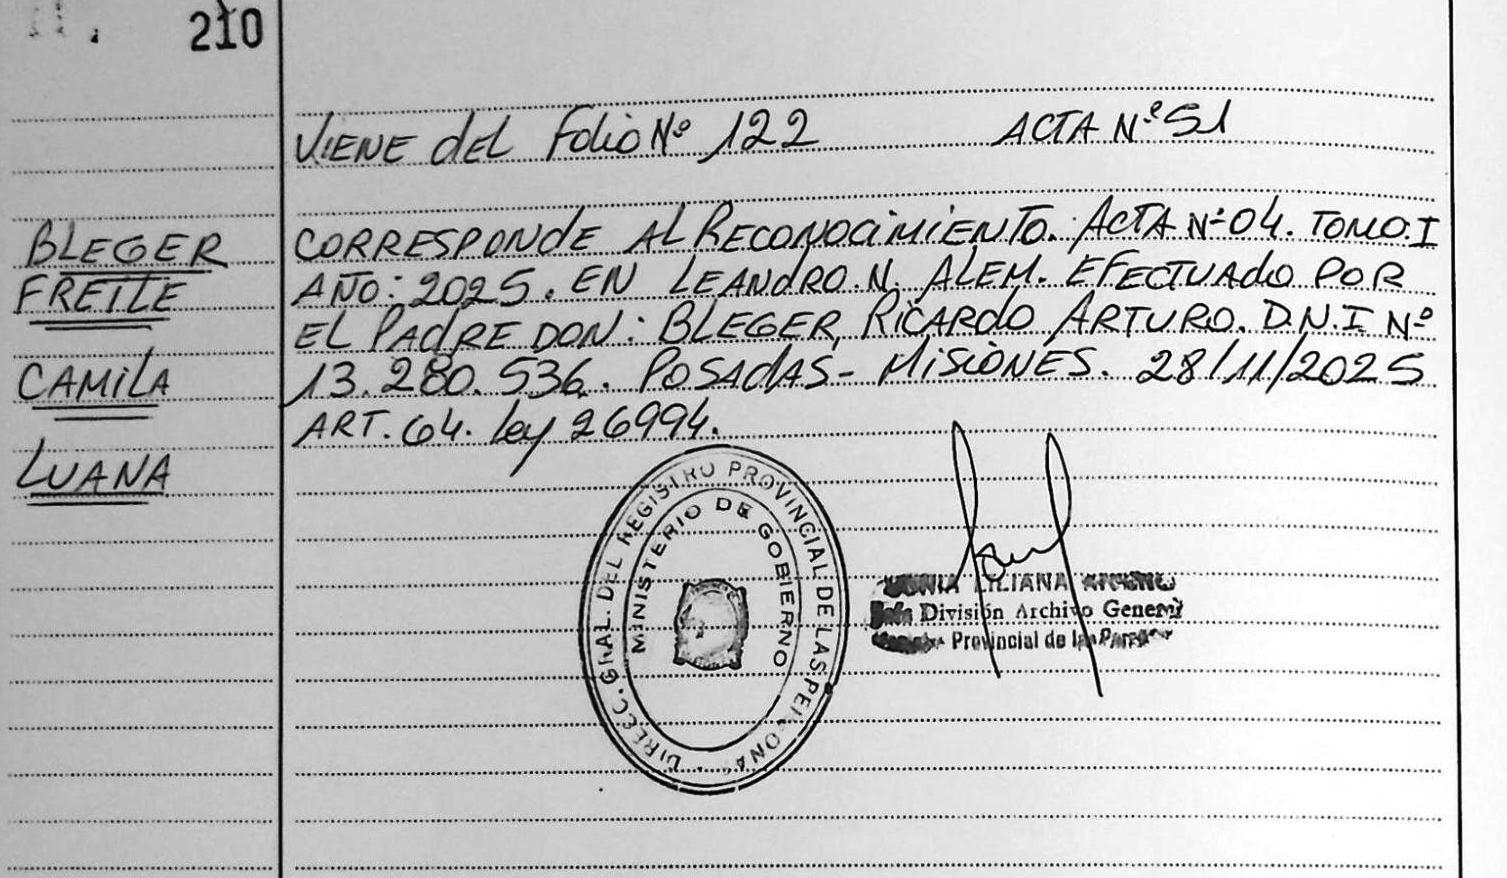 210
VIENE del Folio Nº 122 ACTA Nº 51
BLEGER
FREILE
CAMILA
LUANA
CORRESPONDE AL RECONOCIMIENTO. ACTA Nº 04. TOMO. I
AÑO: 2025. EN LEANDRO. N. ALEM. EFECTUADO POR
EL PADRE DON: BLEGER, RICARDO ARTURO. D.N.I Nº
13.280.536. POSADAS - MISIONES. 28/11/2025
ART. 64. Ley 26994.
DIREC. GRAL. DEL REGISTRO PROVINCIAL DE LAS PERSONAS
MINISTERIO DE GOBIERNO
LILIANA
División Archivo General
Provincial de las Personas